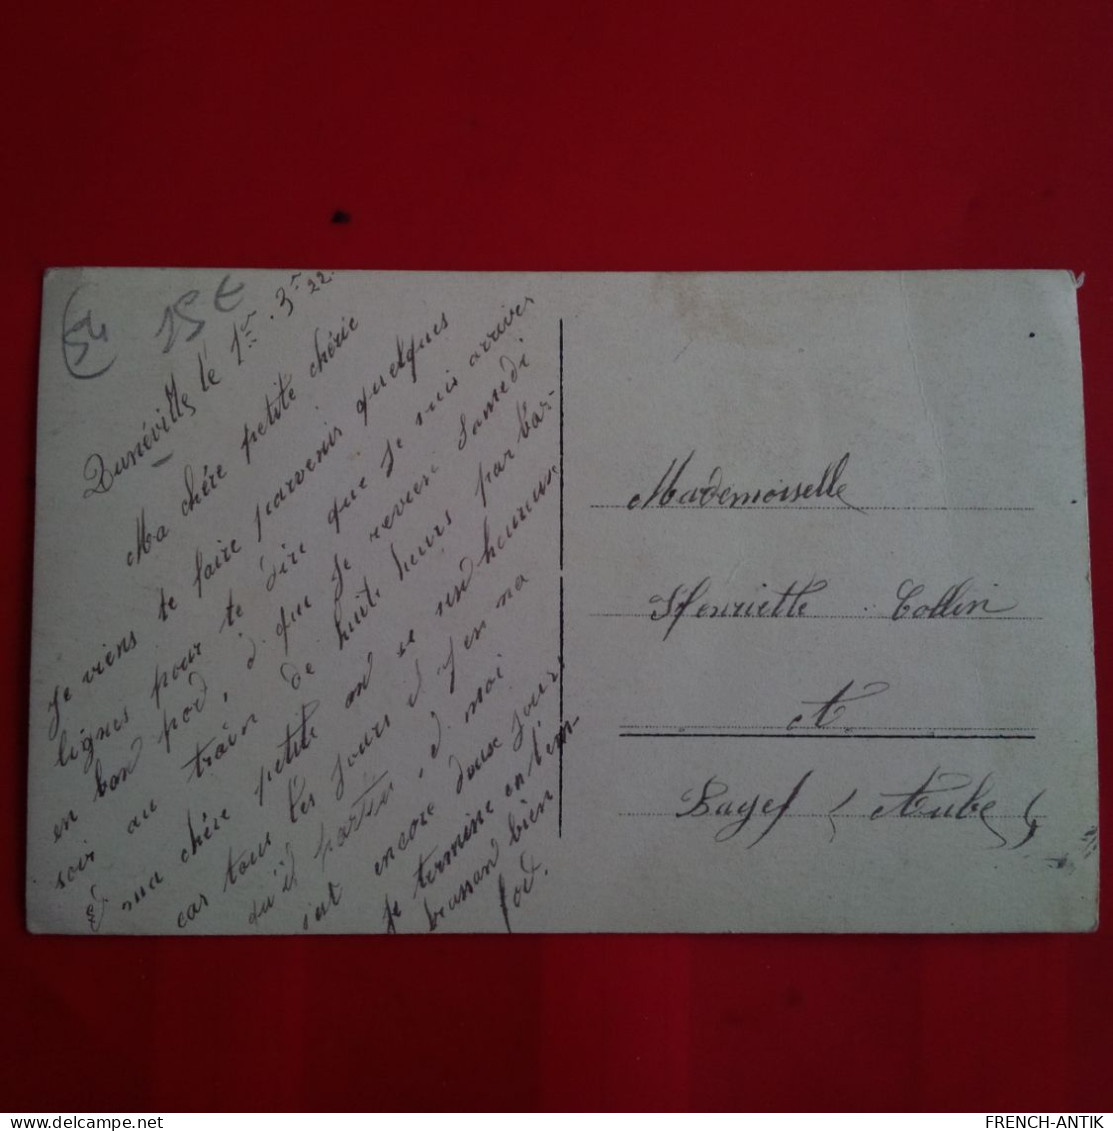 54
15€
Lunéville le 1er. 3r 22.
Ma chére petite chérie
Je viens te faire parvenir quelques
lignes pour te dire que je suis arriver
en bon pord, é que je revien samedi
soir au train de huite heurs par bar-
é ma chére petite on se rend heureuse
car tous les jours é j'en na
qu'il partir, é moi
jai encore douse jour
je termine en t'em-
brassand bien
fod.
Mademoiselle
Henriette Collin
A
Bayel (Aube)
FRENCH-ANTIK